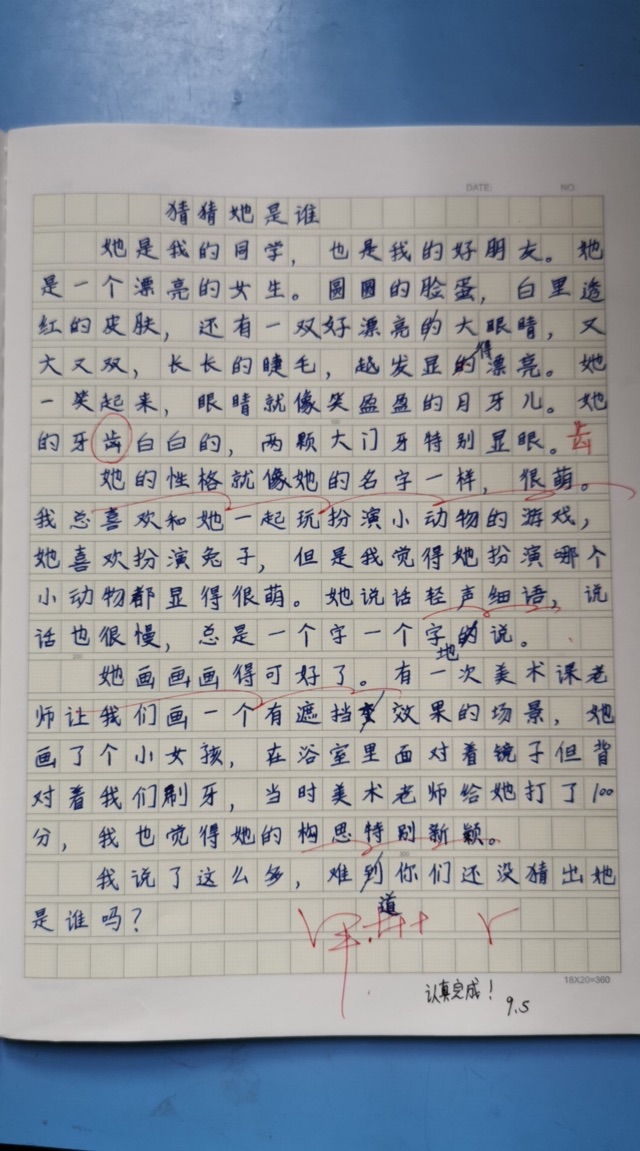 DATE: NO.
猜猜她是谁
她是我的同学，也是我的好朋友。她
是一个漂亮的女生。圆圆的脸蛋，白里透
红的皮肤，还有一双好漂亮的大眼睛，又
大又双，长长的睫毛，越发显得漂亮。她
一笑起来，眼睛就像笑盈盈的月牙儿。她
的牙齿白白的，两颗大门牙特别显眼。齿
她的性格就像她的名字一样，很萌。
我总喜欢和她一起玩扮演小动物的游戏，
她喜欢扮演兔子，但是我觉得她扮演哪个
小动物都显得很萌。她说话轻声细语，说
话也很慢，总是一个字一个字地说。
她画画画得可好了。有一次美术课老
师让我们画一个有遮挡效果的场景，她
画了个小女孩，在浴室里面对着镜子但背
对着我们刷牙，当时美术老师给她打了100
分，我也觉得她的构思特别新颖。
我说了这么多，难道你们还没猜出她
是谁吗？
18X20=360
认真完成！
9.5